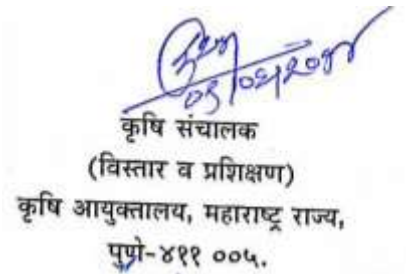 कृषि संचालक
(विस्तार व प्रशिक्षण)
कृषि आयुक्तालय, महाराष्ट्र राज्य,
पुणे-४११ ००५.